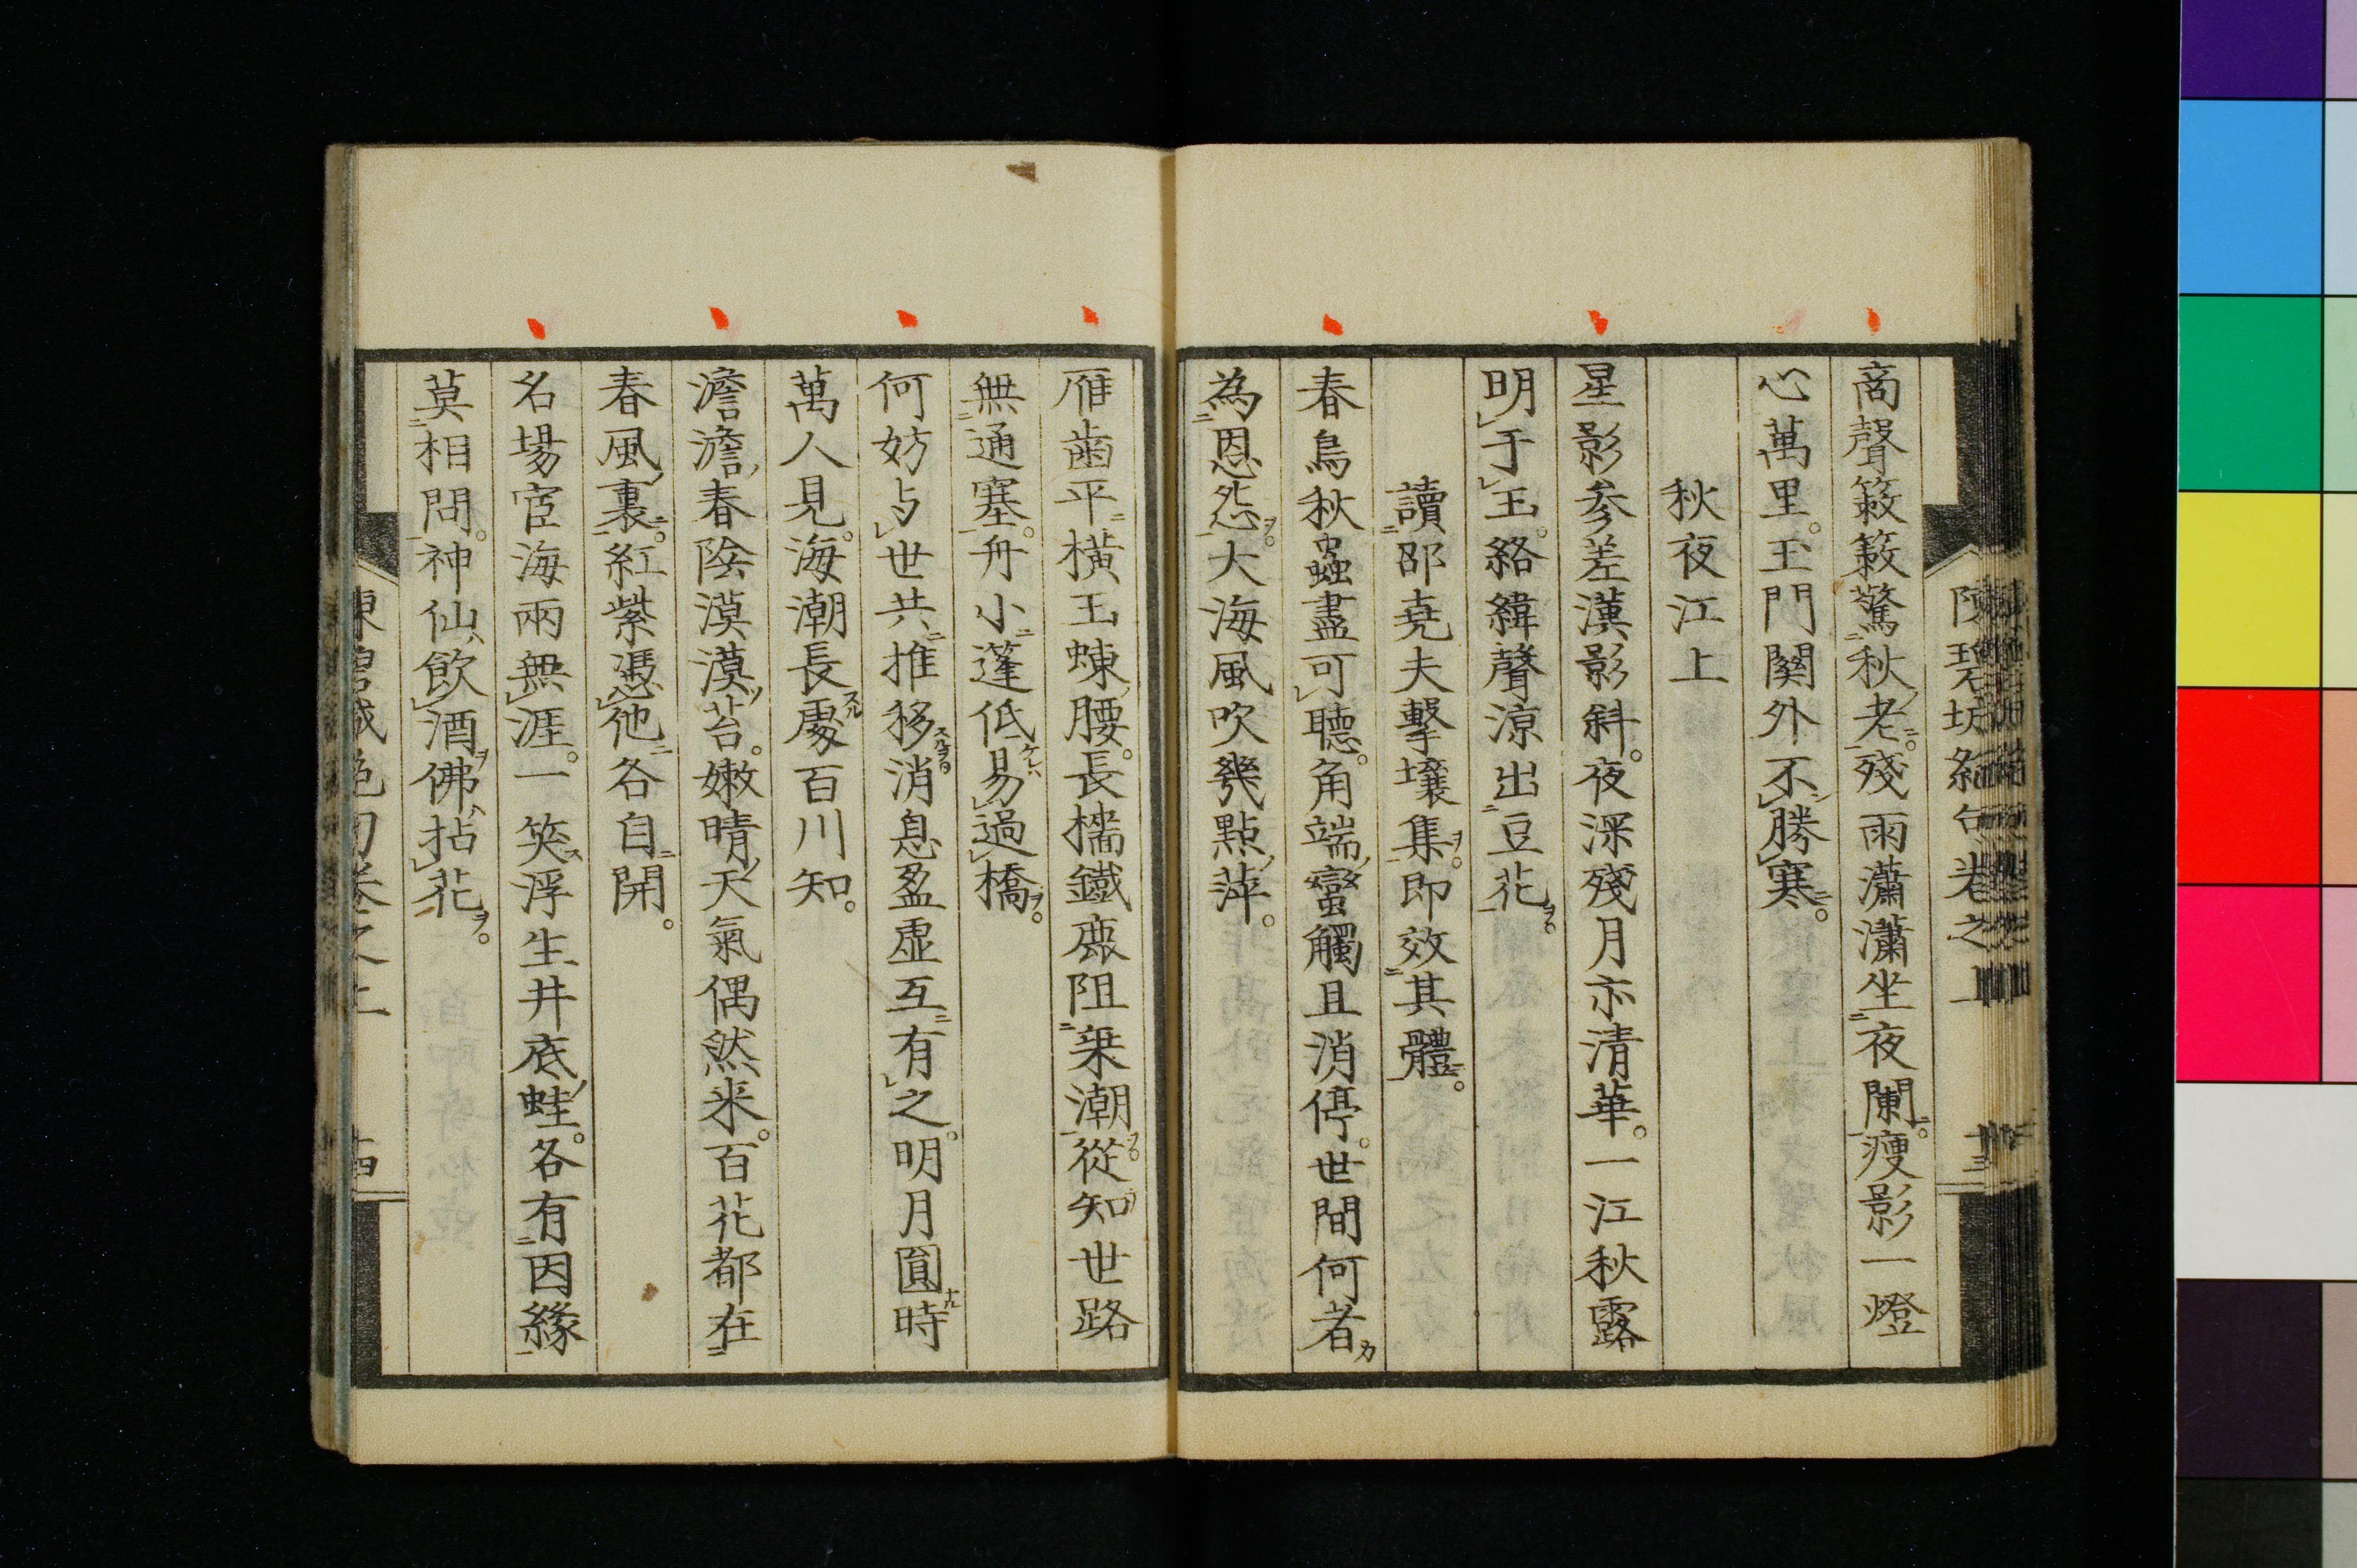 商聲簌簌驚秋老。殘雨瀟瀟坐夜闌。瘦影一燈
心萬里。玉門關外不勝寒。
秋夜江上
星影參差漢影斜。夜深殘月亦清華。一江秋露
明于玉。絡緯聲涼出豆花。
讀邵堯夫擊壤集。即效其體。
春鳥秋蟲盡可聽。角端蠻觸且消停。世間何者
為恩怨。大海風吹幾點萍。
雁齒平橫玉蝀腰。長檣鐵鹿阻乘潮。從知世路
無通塞。舟小蓬低易過橋。
何妨与世共推移。消息盈虛互有之。明月圓時
萬人見。海潮長處百川知。
澹澹春陰漠漠苔。嫩晴天氣偶然来。百花都在
春風裏。紅紫憑他各自開。
名場宦海兩無涯。一笑浮生井底蛙。各有因緣
莫相問。神仙飲酒佛拈花。